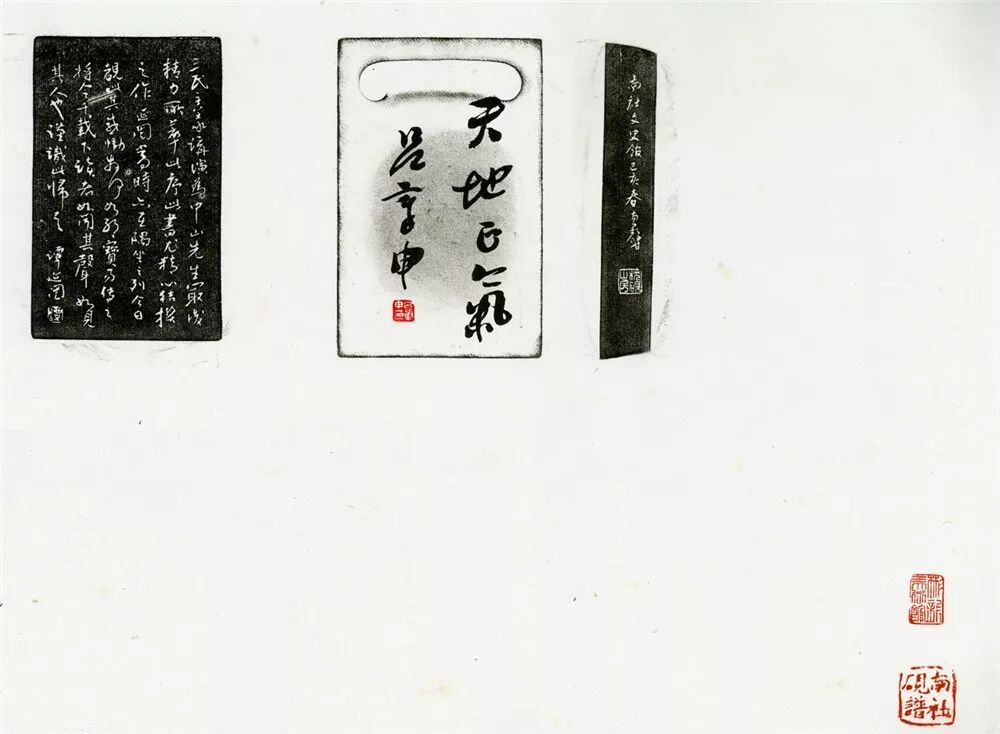 南社文史館己亥春
天地正氣
吕章申
三民主義講演為中山先生最後
精力所萃此序此書尤精心結撰
之作延闓當時亦在隅坐之列今日
觀其寶傳之
將令千載下讀者如聞其聲如見
其人也謹識此歸之 譚延闓
南社
硯譜